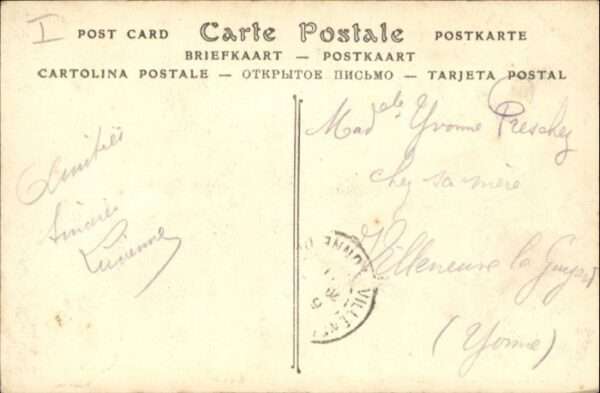 I
POST CARD Carte Postale POSTKARTE
BRIEFKAART — POSTKAART
CARTOLINA POSTALE — ОТКРЫТОЕ ПИСЬМО — TARJETA POSTAL
Amitiés
sincères
Lucienne
Madelle Yvonne
chez sa mère
Villeneuve la Guyard
(Yonne)
YONNE